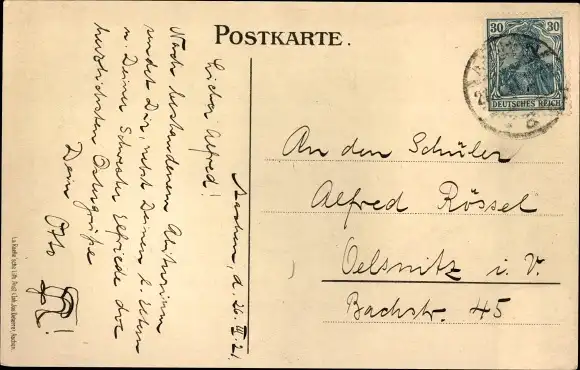 POSTKARTE.
30 30
DEUTSCHES REICH
Aachen, d. 26. III. 21.
Lieber Alfred!
Nach bestandenem Abiturium
sendet Dir, nebst Deinen l. Eltern
u. Deiner Schwester Elfriede die
herzlichsten Ostergrüße
Dein Otto
An den Schüler
Alfred Rössel
Oelsnitz i. V.
Bachstr. 45